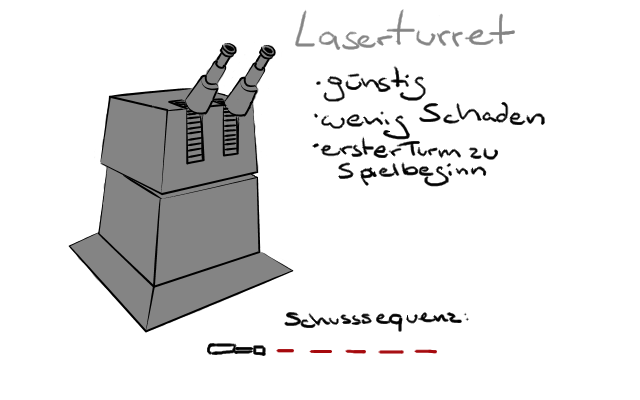 Laserturret
• günstig
• wenig Schaden
• erster Turm zu
Spielbeginn
Schusssequenz: